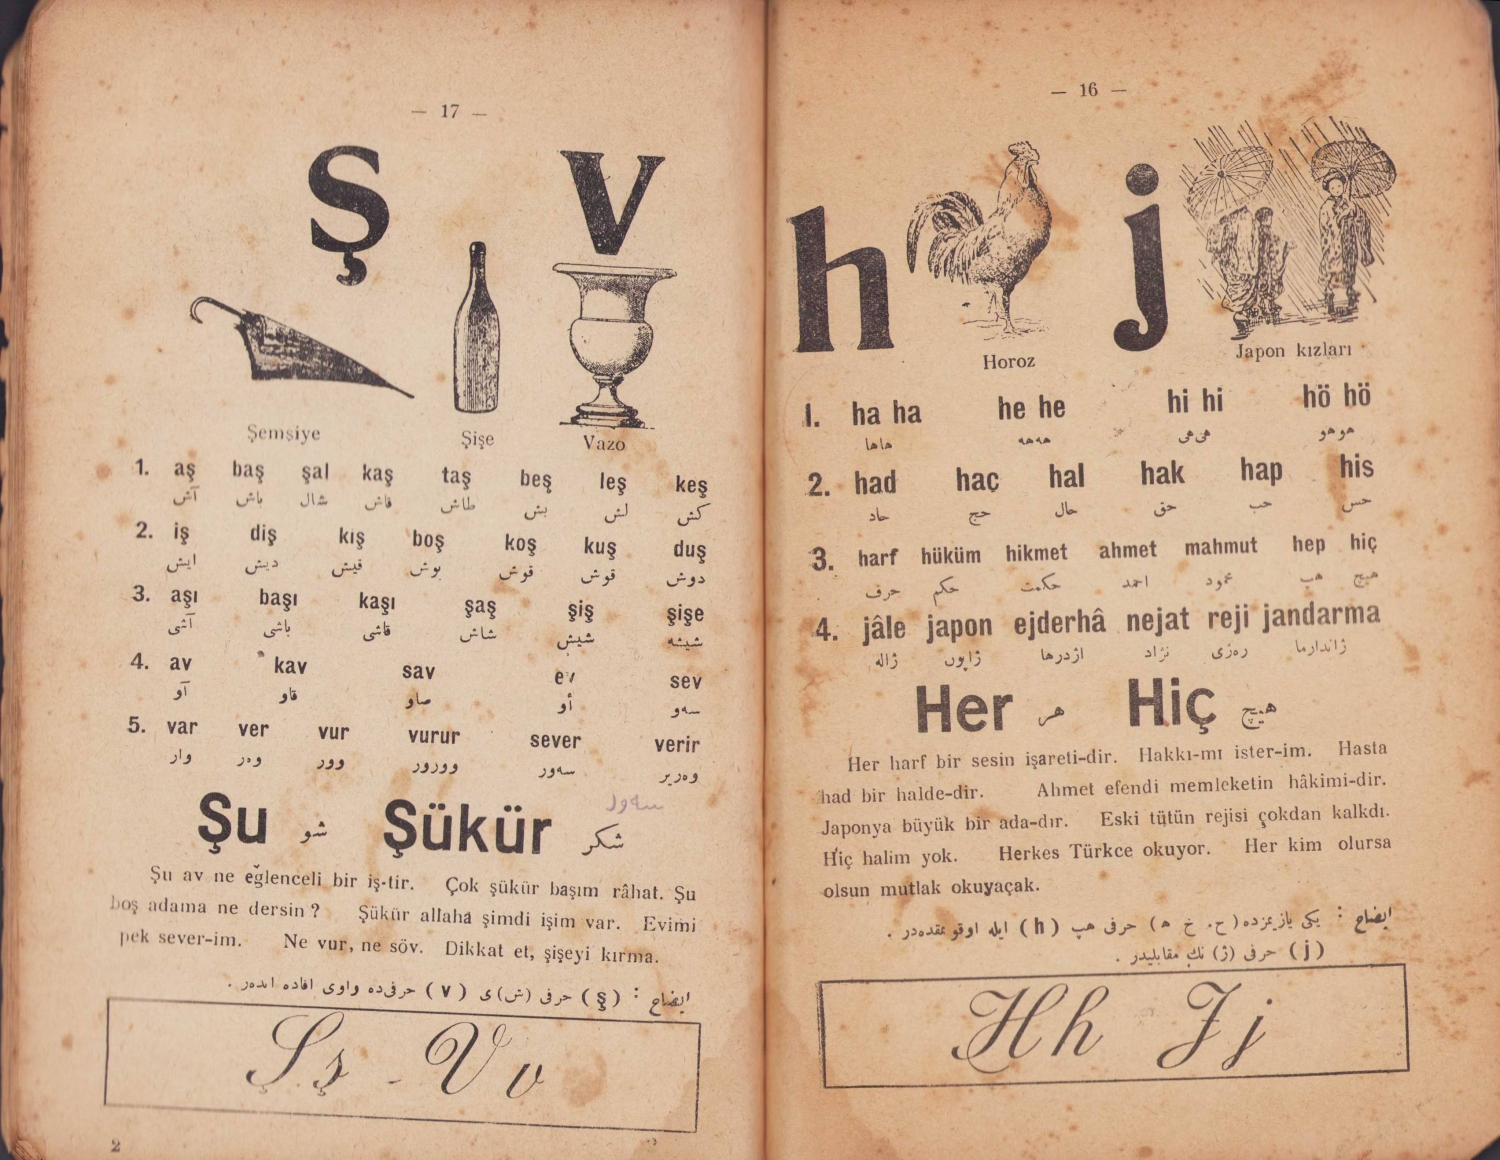 — 16 —
h j
Horoz
Japon kızları
1. ha ha he he hi hi hö hö
هاها هه‌هه هی‌هی هوهو
2. had haç hal hak hap his
حاد حج حال حق حب حس
3. harf hüküm hikmet ahmet mahmut hep hiç
حرف حكم حكمت احمد محمود هپ هیچ
4. jâle japon ejderhâ nejat reji jandarma
ژاله ژاپون اژدرها نژاد ره‌ژی ژاندارما
Her هر Hiç هیچ
Her harf bir sesin işareti-dir. Hakkı-mı ister-im. Hasta
had bir halde-dir. Ahmet efendi memleketin hâkimi-dir.
Japonya büyük bir ada-dır. Eski tütün rejisi çokdan kalkdı.
Hiç halim yok. Herkes Türkce okuyor. Her kim olursa
olsun mutlak okuyaçak.
ایضاح : یكی یازیمزده (ح. خ ه) حرفی هپ (h) ایله اوقونمقده‌در .
(j) حرفی (ژ) نك مقابلیدر .
Hh Jj
— 17 —
Ş v
Şemsiye
Şişe
Vazo
1. aş baş şal kaş taş beş leş keş
آش باش شال قاش طاش بش لش كش
2. iş diş kış boş koş kuş duş
ایش دیش قیش بوش قوش قوش دوش
3. aşı başı kaşı şaş şiş şişe
آشی باشی قاشی شاش شیش شیشه
4. av kav sav ev sev
آو قاو صاو أو سه‌و
5. var ver vur vurur sever verir
وار وه‌ر وور وورور سه‌ور وه‌ریر
سه‌ور
Şu شو Şükür شكر
Şu av ne eğlenceli bir iş-tir. Çok şükür başım râhat. Şu
boş adama ne dersin ? Şükür allaha şimdi işim var. Evimi
pek sever-im. Ne vur, ne söv. Dikkat et, şişeyi kırma.
ایضاح : (ş) حرفی (ش) ی (v) حرفی‌ده واوی افاده ایده‌ر .
Şş - Vv
2